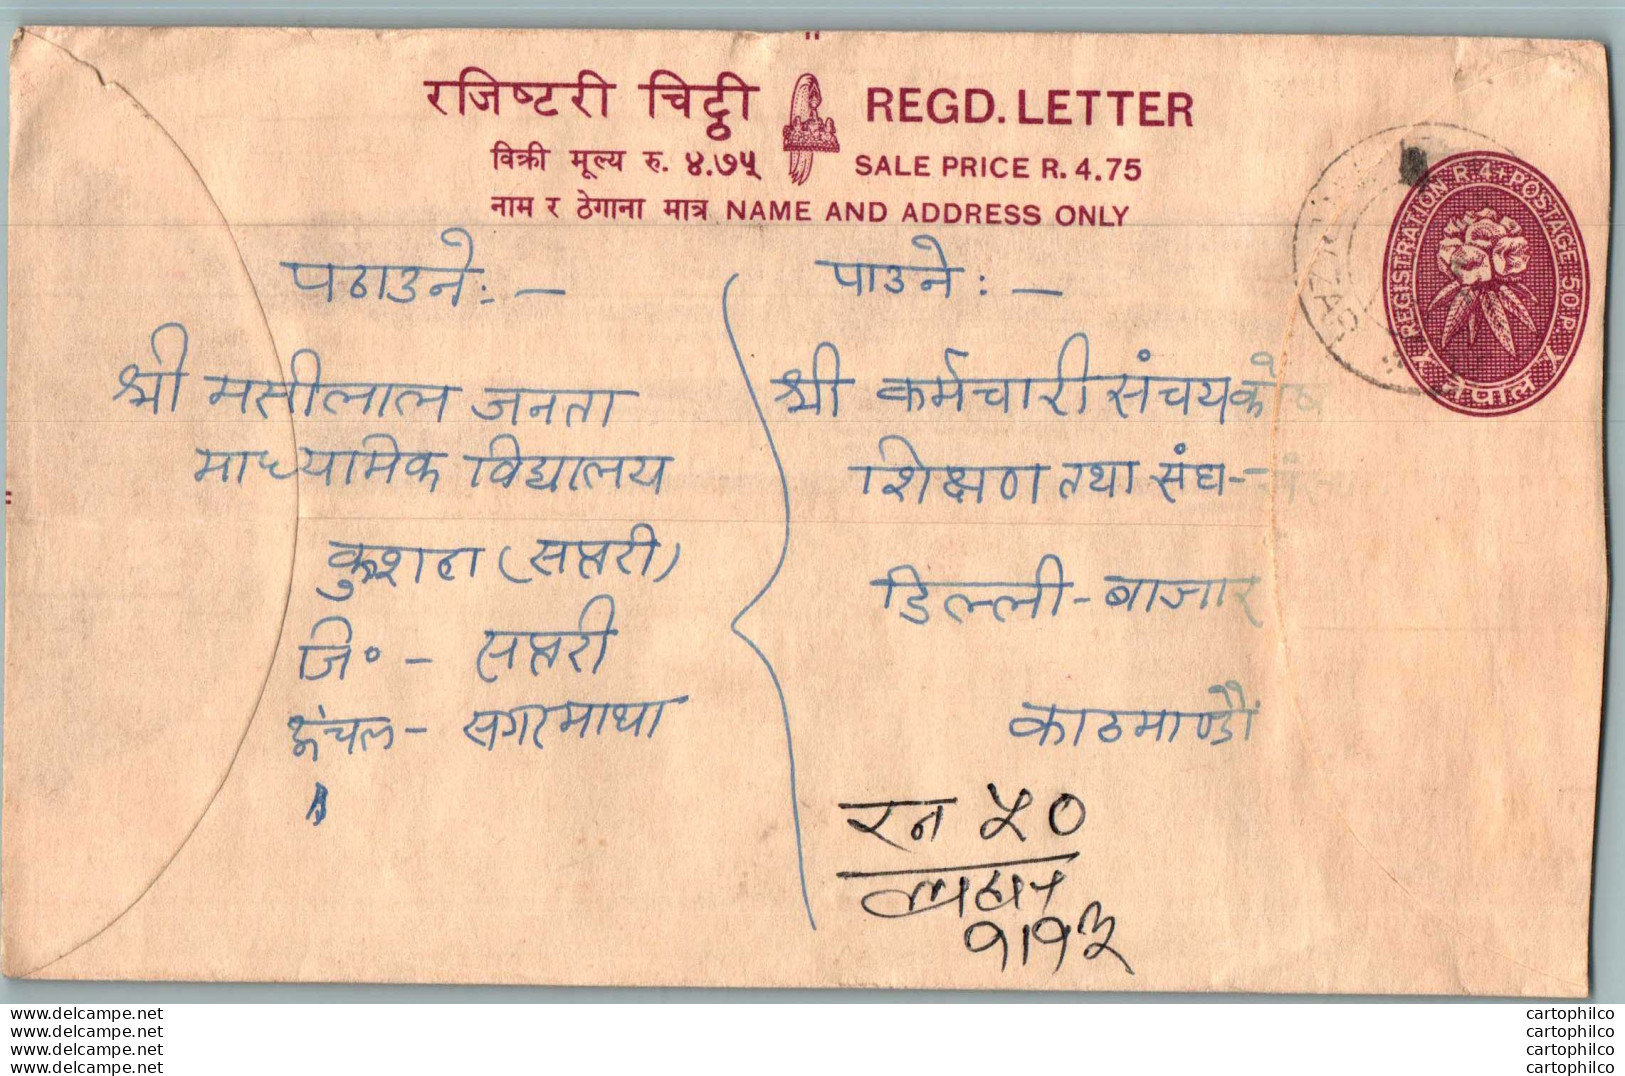 रजिष्टरी चिट्ठी REGD. LETTER
विक्री मूल्य रु. ४.७५ SALE PRICE R. 4.75
नाम र ठेगाना मात्र NAME AND ADDRESS ONLY
REGISTRATION R 4 - POSTAGE 50 P.
नेपाल
पठाउने :-
श्री मसीलाल जनता
माध्यमिक विद्यालय
कुशहा (सप्तरी)
जि० - सप्तरी
अंचल - सगरमाथा
पाउने : -
श्री कर्मचारी संचय कोष
शिक्षण तथा संघ-
डिल्ली - बाजार
काठमाण्डौ
रन ५०
लहान
१।१३
www.delcampe.net
www.delcampe.net
www.delcampe.net
www.delcampe.net
cartophilco
cartophilco
cartophilco
cartophilco